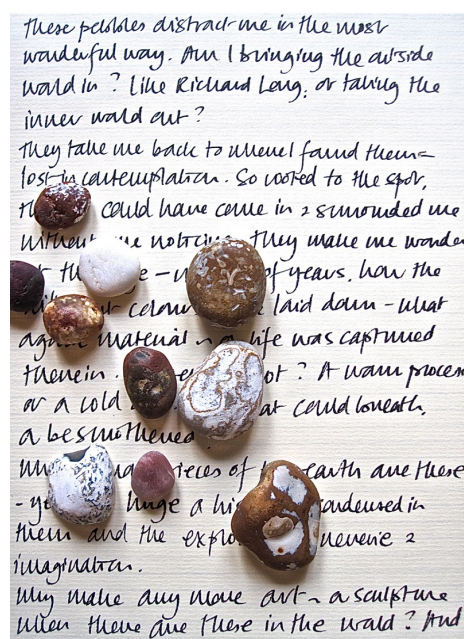 These pebbles distract me in the most
wonderful way. Am I bringing the outside
world in? Like Richard Long, or taking the
inner world out?
They take me back to where I found them -
lost in contemplation. So rooted to the spot,
could have come in & surrounded me
without me noticing. They make me wonder
of years, how the
colour laid down - what
material life was captured
therein. ot? A warm process
or a cold at could breath,
a be smothered
ieces of earth are these
- huge a hi condensed in
them and the explo reverie &
imagination.
Why make any more art - a sculpture
when there are these in the world? And